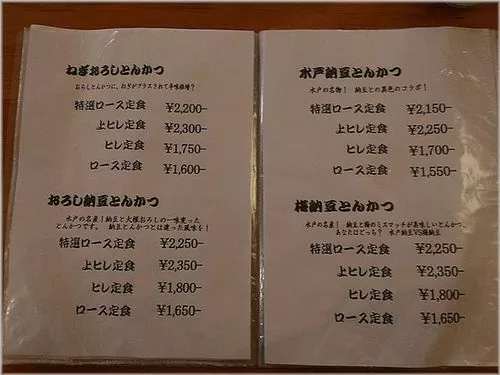 ねぎおろしとんかつ
おろしとんかつに、ねぎがプラスされて辛味倍増?
特選ロース定食 ¥2,200-
上ヒレ定食 ¥2,300-
ヒレ定食 ¥1,750-
ロース定食 ¥1,600-
おろし納豆とんかつ
水戸の名産!納豆と大根おろしの一味変った
とんかつです。 納豆とんかつとは違った風味を!
特選ロース定食 ¥2,250-
上ヒレ定食 ¥2,350-
ヒレ定食 ¥1,800-
ロース定食 ¥1,650-
水戸納豆とんかつ
水戸の名物! 納豆との異色のコラボ!
特選ロース定食 ¥2,150-
上ヒレ定食 ¥2,250-
ヒレ定食 ¥1,700-
ロース定食 ¥1,550-
梅納豆とんかつ
水戸の名産! 納豆と梅のミスマッチが美味しいとんかつ、
あなたはどっち? 水戸納豆VS梅納豆
特選ロース定食 ¥2,250-
上ヒレ定食 ¥2,350-
ヒレ定食 ¥1,800-
ロース定食 ¥1,650-